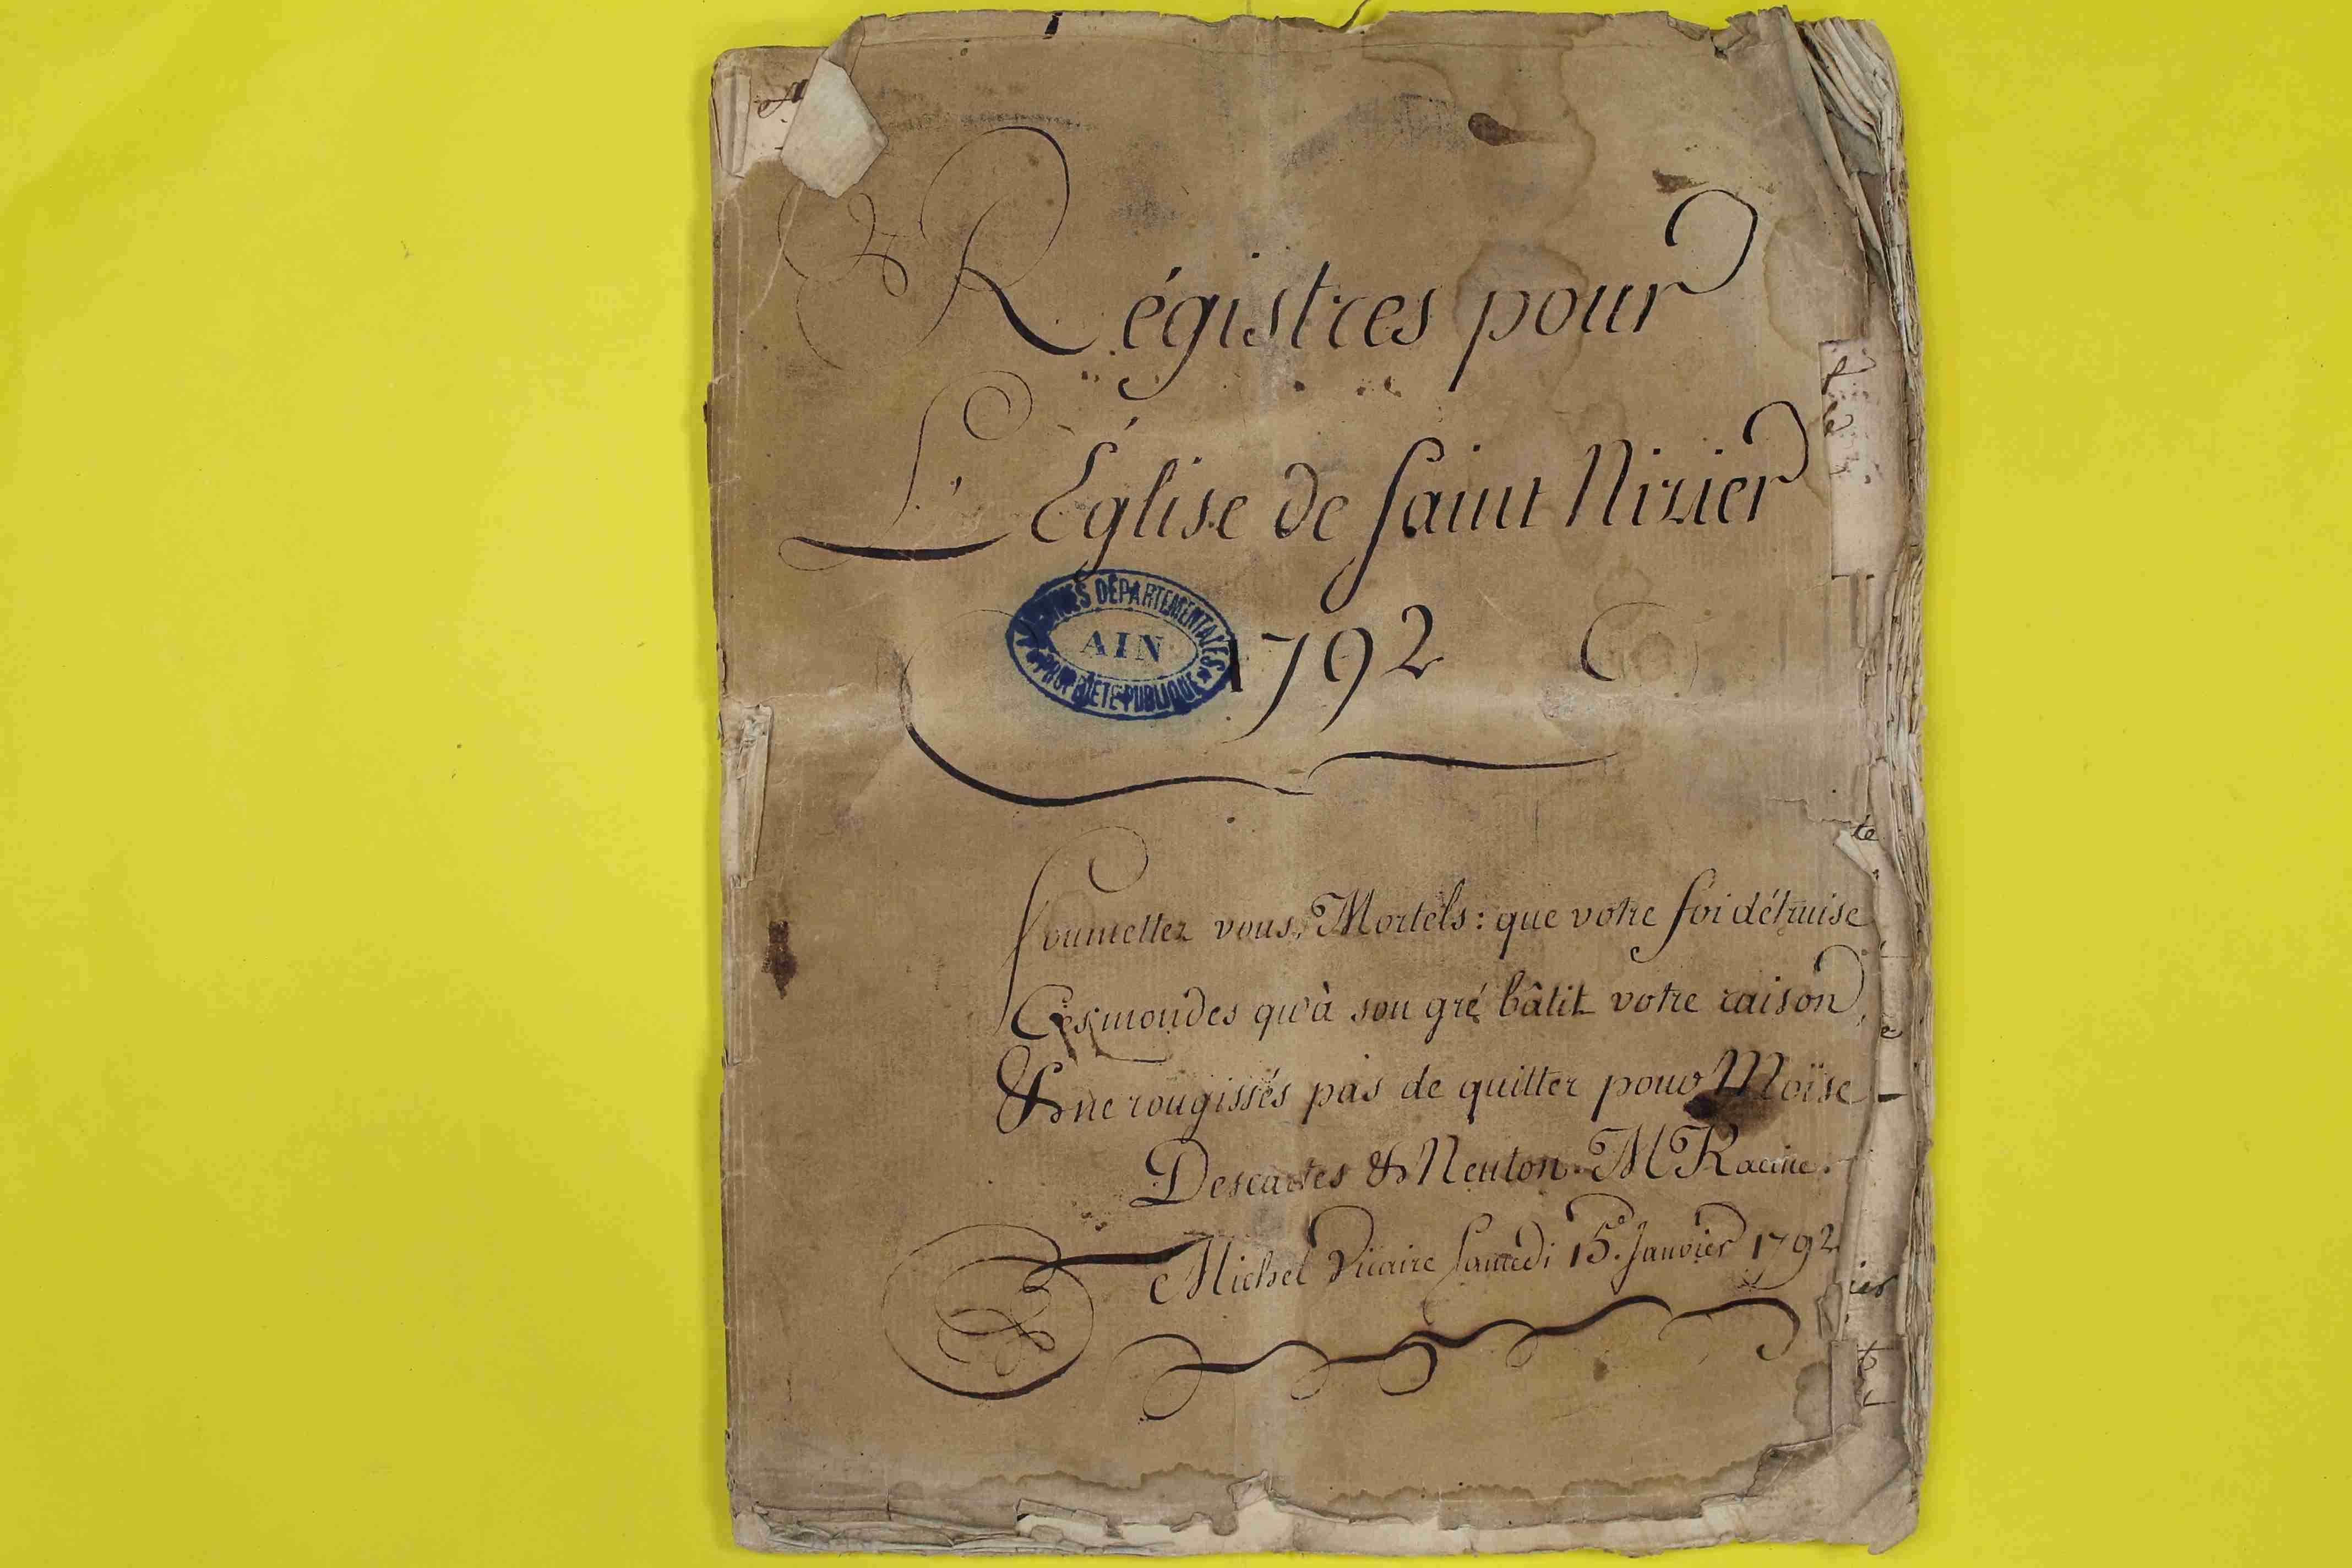 Régistres pour
L'Église de Saint Nizier
ARCHIVES DÉPARTEMENTALES
AIN
PROPRIÉTÉ PUBLIQUE
1792
Soumettez vous, Mortels : que votre foi détruise
Ces mondes qu'à son gré bâtit votre raison,
& ne rougissés pas de quitter pour Moïse
Descartes & Neuton. M Racine.
Michel Vicaire Samedi 15. Janvier 1792